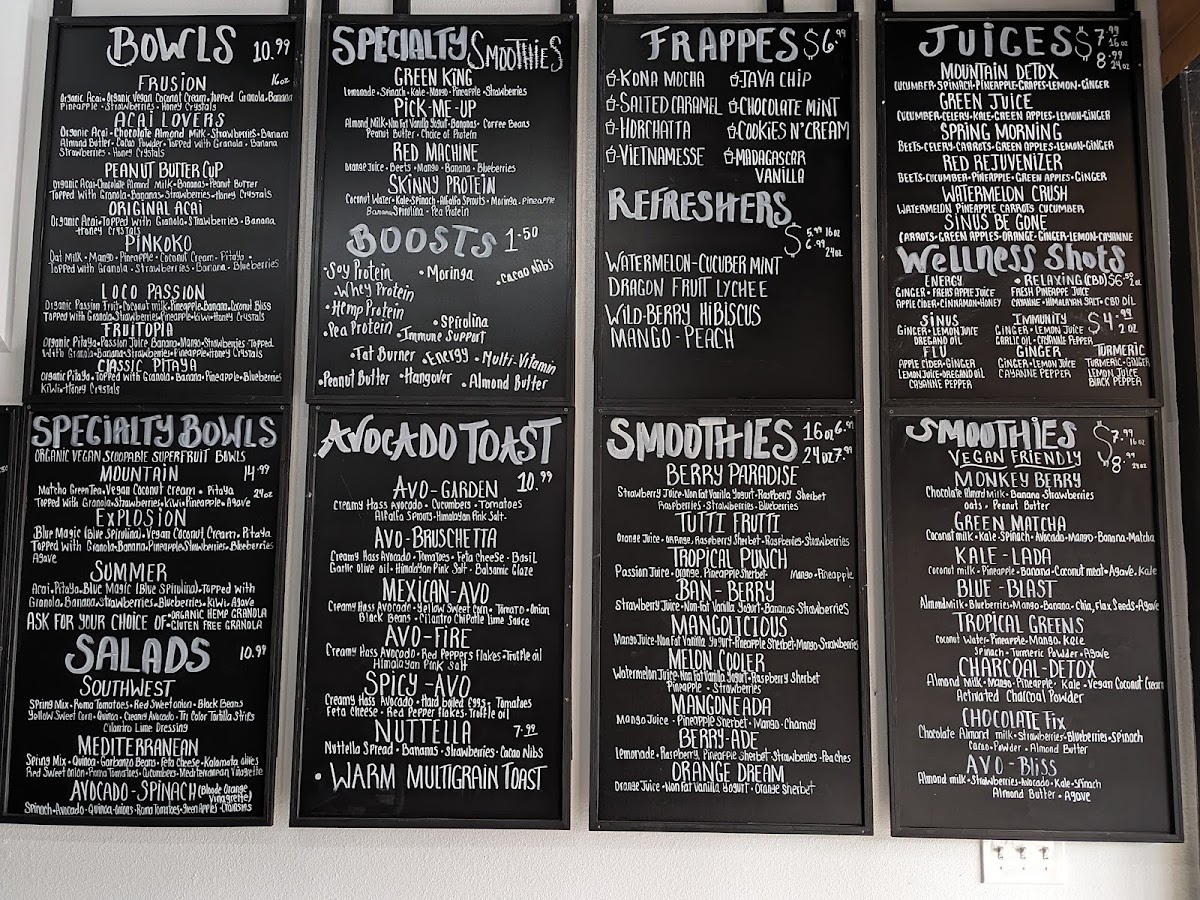 BOWLS 10.99
16oz
FRUSION
Organic Acai • Organic Vegan Coconut Cream, Topped Granola • Banana
Pineapple • Strawberries • Honey Crystals
ACAI LOVERS
Organic Acai • Chocolate Almond Milk • Strawberries • Banana
Almond Butter • Cacao Powder • Topped with Granola • Banana
Strawberries • Honey Crystals
PEANUT BUTTER CUP
Organic Acai • Chocolate Almond Milk • Bananas • Peanut Butter
Topped with Granola • Bananas • Strawberries • Honey Crystals
ORIGINAL ACAI
Organic Acai • Topped with Granola • Strawberries • Banana
Honey Crystals
PINKOKO
Oat Milk • Mango • Pineapple • Coconut Cream • Pitaya •
Topped with Granola • Strawberries • Banana • Blueberries
LOCO PASSION
Organic Passion Fruit • Coconut milk • Pineapple • Banana • Coconut Bliss
Topped with Granola • Strawberries • Pineapple • Kiwi • Honey Crystals
FRUITOPIA
Organic Pitaya • Passion Juice • Banana • Mango • Strawberries • Topped
With Granola • Banana • Strawberries • Pineapple • Honey Crystals
CLASSIC PITAYA
Organic Pitaya • Topped with Granola • Banana • Pineapple • Blueberries
Kiwi • Honey Crystals
SPECIALTY SMOOTHIES
GREEN KING
Lemonade • Spinach • Kale • Mango • Pineapple • Strawberries
PICK-ME-UP
Almond Milk • Non Fat Vanilla Yogurt • Bananas • Coffee Beans
Peanut Butter • Choice of Protein
RED MACHINE
Orange Juice • Beets • Mango • Banana • Blueberries
SKINNY PROTEIN
Coconut Water • Kale • Spinach • Alfalfa Sprouts • Moringa • Pineapple
Banana • Spirulina • Pea Protein
BOOSTS 1.50
• Soy Protein • Moringa • Cacao Nibs
• Whey Protein
• Hemp Protein
• Pea Protein • Spirulina
• Immune Support
• Fat Burner • Energy • Multi-Vitamin
• Peanut Butter • Hangover • Almond Butter
FRAPPES $6.99
KONA MOCHA JAVA CHIP
SALTED CARAMEL CHOCOLATE MINT
HORCHATTA COOKIES N' CREAM
VIETNAMESSE MADAGASCAR
VANILLA
REFRESHERS
$5.99 16oz
6.99 24oz
WATERMELON-CUCUBER MINT
DRAGON FRUIT LYCHEE
WILD-BERRY HIBISCUS
MANGO - PEACH
JUICES $7.99 16oz
8.99 24oz
MOUNTAIN DETOX
CUCUMBER-SPINACH-PINEAPPLE-GRAPES-LEMON-GINGER
GREEN JUICE
CUCUMBER-CELERY-KALE-GREEN APPLES-LEMON-GINGER
SPRING MORNING
BEETS-CELERY-CARROTS-GREEN APPLES-LEMON-GINGER
RED REJUVENIZER
BEETS-CUCUMBER-PINEAPPLE-GREEN APPLES-GINGER
WATERMELON CRUSH
WATERMELON PINEAPPLE CARROTS CUCUMBER
SINUS BE GONE
CARROTS-GREEN APPLES-ORANGE-GINGER-LEMON-CAYANNE
WELLNESS SHOTS
ENERGY • RELAXING (CBD) $6.50 2oz
GINGER • FREHS APPLE JUICE FRESH PINEAPPE JUICE
APPLE CIDER • CINNAMON • HONEY CAYANNE • HIMALAYAN SALT • CBD OIL
SINUS IMMUNITY $4.99 2oz
GINGER • LEMON JUICE GINGER • LEMON JUICE
OREGANO OIL GARLIC OIL • CAYANNE PEPPER
FLU GINGER TURMERIC
APPLE CIDER • GINGER GINGER • LEMON JUICE TURMERIC • GINGER
LEMON JUICE • OREGANO OIL CAYANNE PEPPER LEMON JUICE
CAYANNE PEPPER BLACK PEPPER
SPECIALTY BOWLS
ORGANIC VEGAN SCOOPABLE SUPERFRUIT BOWLS
MOUNTAIN 14.99
24oz
Matcha Green Tea • Vegan Coconut Cream • Pitaya
Topped with Granola • Strawberries • Kiwi • Pineapple • Agave
EXPLOSION
Blue Magic (Blue Spirulina) • Vegan Coconut Cream • Pitaya
Topped with Granola • Banana • Pineapple • Strawberries • Blueberries
Agave
SUMMER
Acai • Pitaya • Blue Magic (Blue Spirulina) • Topped with
Granola • Banana • Strawberries • Blueberries • Kiwi • Agave
ASK FOR YOUR CHOICE OF • ORGANIC HEMP GRANOLA
• GLUTEN FREE GRANOLA
SALADS 10.99
SOUTHWEST
Spring Mix • Roma Tomatoes • Red Sweet onion • Black Beans
Yellow Sweet Corn • Quinoa • Creamy Avocado • Tri Color Tortilla Strips
Cilantro Lime Dressing
MEDITERRANEAN
Spring Mix • Quinoa • Garbanzo Beans • Feta Cheese • Kalamata olives
Red Sweet Onion • Roma Tomatoes • Cucumbers • Mediterranean Vinagrette
AVOCADO-SPINACH (Bloode Orange
Vinagrette)
Spinach • Avocado • Quinoa • Onions • Roma Tomatoes • Green Apples • Craisins
AVOCADO TOAST
10.99
AVO-GARDEN
Creamy Hass Avocado • Cucumbers • Tomatoes
Alfalfa Sprouts • Himalayan Pink Salt
AVO-BRUSCHETTA
Creamy Hass Avocado • Tomatoes • Feta Cheese • Basil
Garlic Olive oil • Himalayan Pink Salt • Balsamic Glaze
MEXICAN-AVO
Creamy Hass Avocado • Yellow Sweet Corn • Tomato • Onion
Black Beans • Cilantro Chipotle Lime Sauce
AVO-FIRE
Creamy Hass Avocado • Red Peppers Flakes • Truffle oil
Himalayan Pink Salt
SPICY-AVO
Creamy Hass Avocado • Hard boiled Eggs • Tomatoes
Feta Cheese • Red Pepper Flakes • Truffle Oil
NUTTELLA 7.99
Nuttella Spread • Bananas • Strawberries • Cacao Nibs
• WARM MULTIGRAIN TOAST
SMOOTHIES 16oz 6.99
24oz 7.99
BERRY PARADISE
Strawberry Juice • Non Fat Vanilla Yogurt • Raspberry Sherbet
Raspberries • Strawberries • Blueberries
TUTTI FRUTTI
Orange Juice • Orange, Raspberry Sherbet • Raspberries • Strawberries
TROPICAL PUNCH
Passion Juice • Orange, Pineapple Sherbet • Mango • Pineapple
BAN-BERRY
Strawberry Juice • Non-Fat Vanilla Yogurt • Bananas • Strawberries
MANGOLICIOUS
Mango Juice • Non Fat Vanilla Yogurt • Pineapple Sherbet • Mango • Strawberries
MELON COOLER
Watermelon Juice • Non Fat Vanilla Yogurt • Raspberry Sherbet
Pineapple • Strawberries
MANGONEADA
Mango Juice • Pineapple Sherbet • Mango • Chamoy
BERRY-ADE
Lemonade • Raspberry, Pineapple Sherbet • Strawberries • Peaches
ORANGE DREAM
Orange Juice • Non Fat Vanilla Yogurt • Orange Sherbet
SMOOTHIES $7.99 16oz
VEGAN FRIENDLY 8.99 24oz
MONKEY BERRY
Chocolate Almond milk • Banana • Strawberries
Oats • Peanut Butter
GREEN MATCHA
Coconut milk • Kale • Spinach • Avocado • Mango • Banana • Matcha
KALE-LADA
Coconut milk • Pineapple • Banana • Coconut meat • Agave • Kale
BLUE-BLAST
Almond Milk • Blueberries • Mango • Banana • Chia, Flax Seeds • Agave
TROPICAL GREENS
Coconut Water • Pineapple • Mango • Kale
Spinach • Turmeric Powder • Agave
CHARCOAL-DETOX
Almond Milk • Mango • Pineapple • Kale • Vegan Coconut Cream
Activated Charcoal Powder
CHOCOLATE FIX
Chocolate Almond milk • Strawberries • Blueberries • Spinach
Cacao • Powder • Almond Butter
AVO-BLISS
Almond milk • Strawberries • Avocado • Kale • Spinach
Almond Butter • Agave